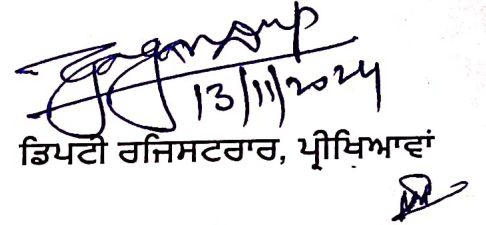 13/11/2024
ਡਿਪਟੀ ਰਜਿਸਟਰਾਰ, ਪ੍ਰੀਖਿਆਵਾਂ